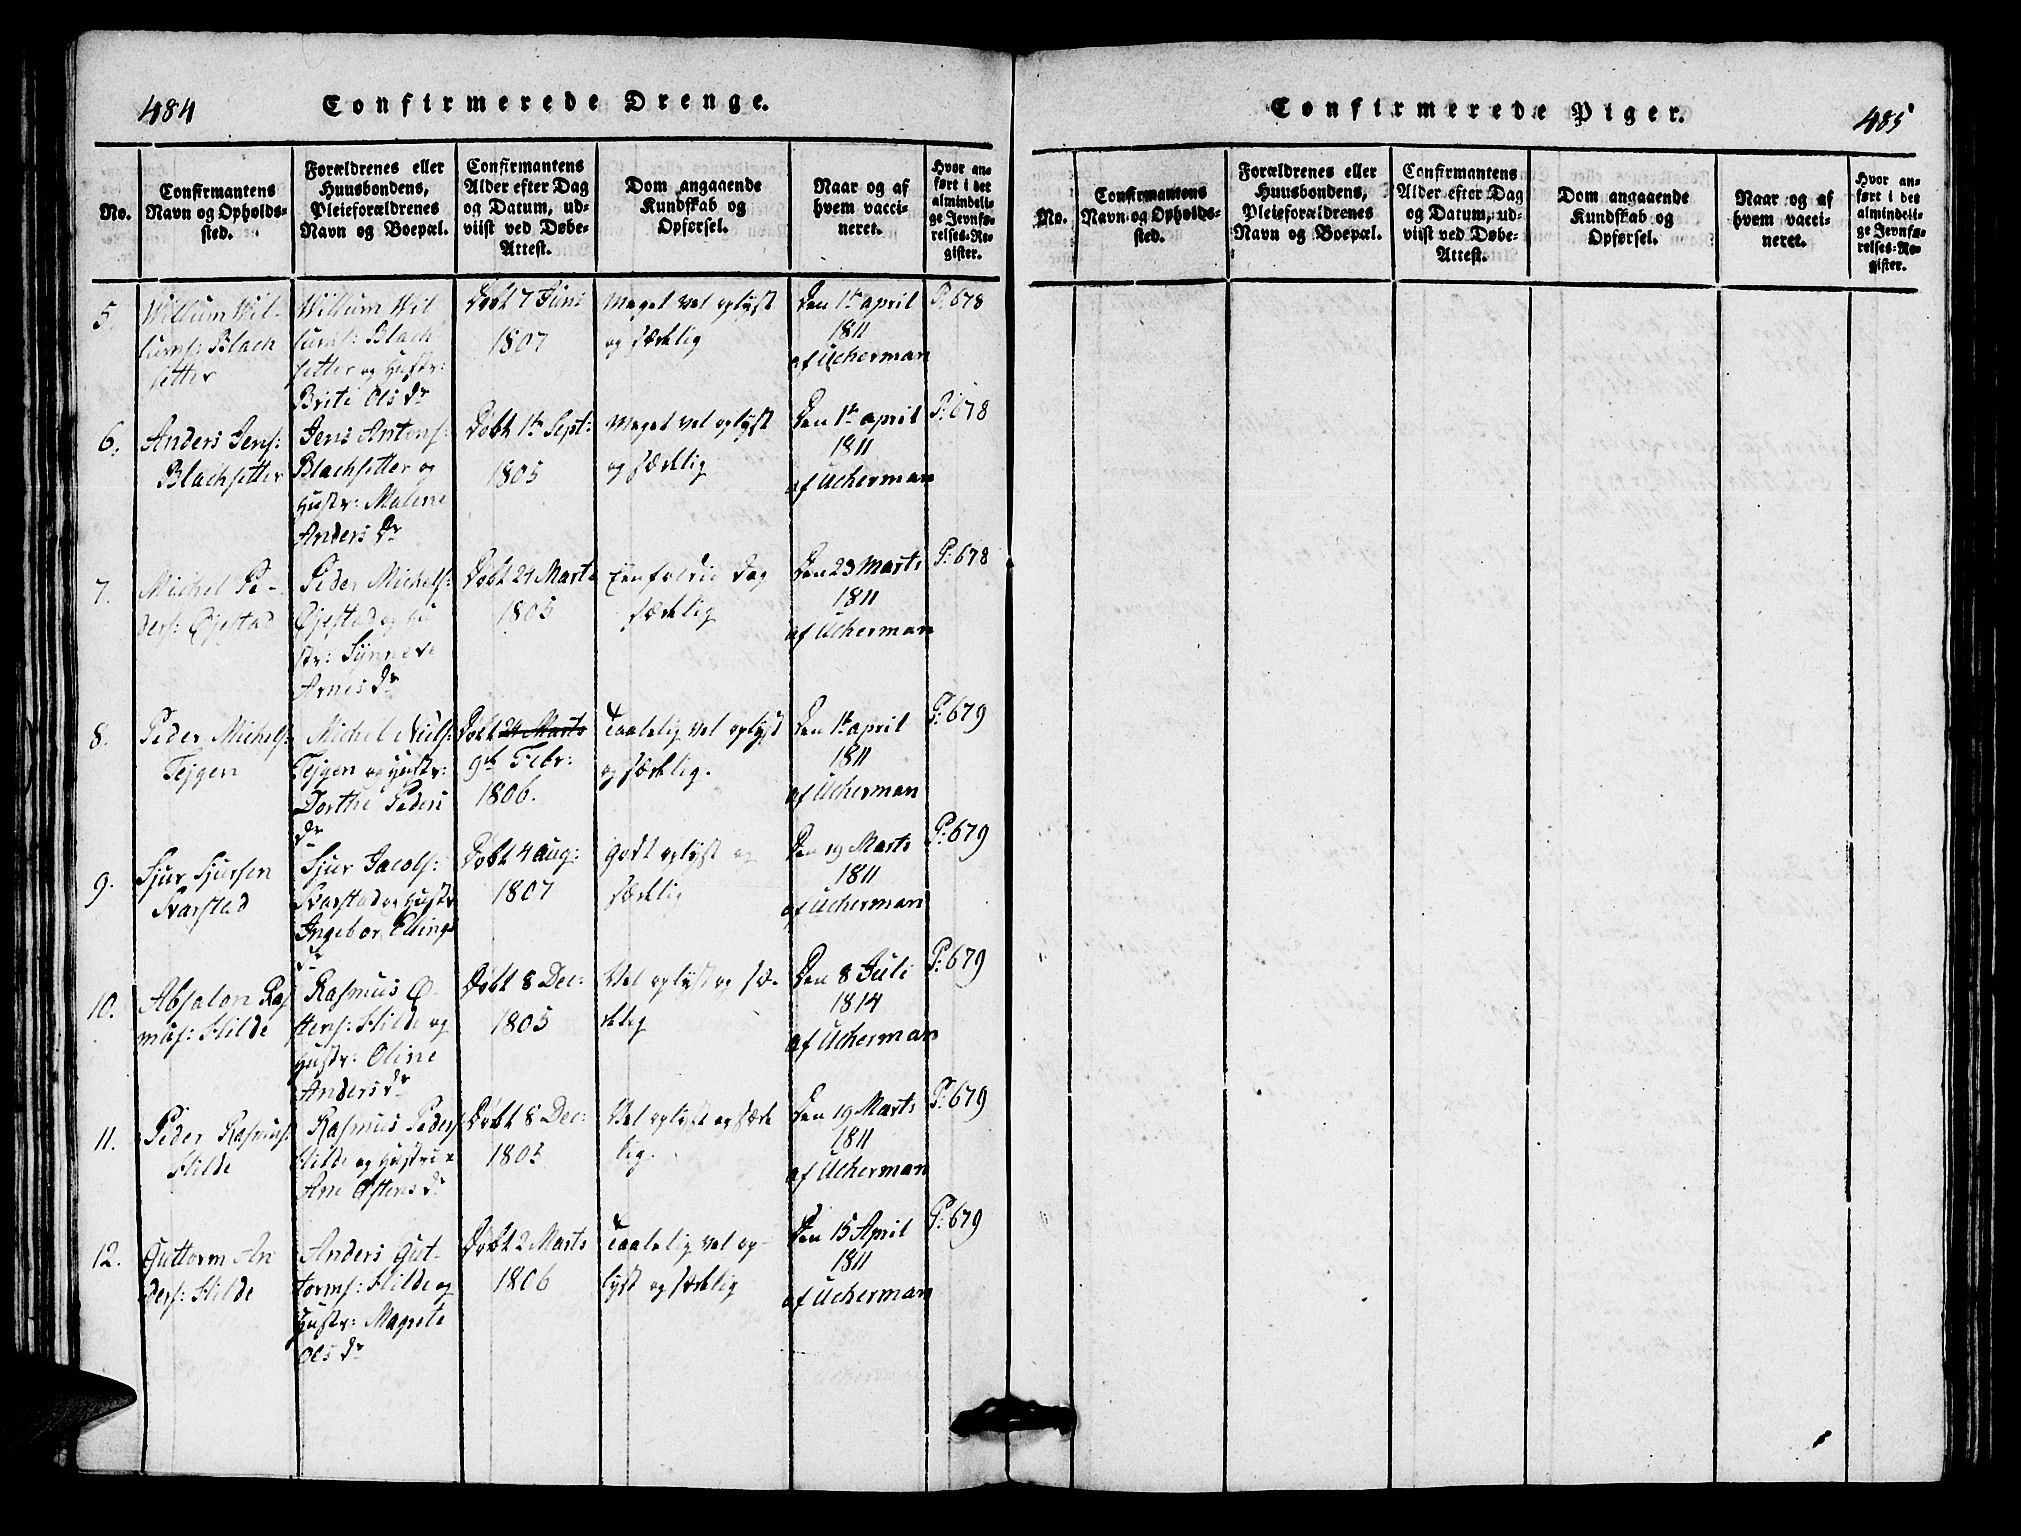 484
Confirmerede Drenge.
No.
Confirmantens
Navn og Opholds-
sted.
Forældrenes eller
Huusbondens,
Pleieforældrenes
Navn og Boepæl.
Confirmantens
Alder efter Dag
og Datum, ud-
viist ved Døbe-
Attest.
Dom angaaende
Kundskab og
Opførsel.
Naar og af
hvem vacci-
neret.
Hvor an-
ført i det
almindeli-
ge Jevnfø-
relses-Re-
gister.
5.
Willum Wil-
lums: Blach
setter
Willum Wil
lums: Blach
setter og Hustr:
Brite Ols Dr
Døbt 7 Juni
1807
Meget vel oplyst
og sædelig
Den 1te april
1811
af Ucherman
P: 678
6.
Anders Jens:
Blachsetter
Jens Antons:
Blachsetter og
Hustr: Malene
Anders Dr
Døbt 1te Sept:
1805
Meget vel oplyst
og sædelig
Den 1te april
1811
af Ucherman
P: 678
7.
Michel Pe-
ders: Øjestad
Peder Michels:
Øjestad og Hu
str: Synneve
Arnes Dr
Døbt 24 Marts
1805
Eenfoldig dog
sædelig
Den 23 Marts
1811
af Ucherman
P: 678
8.
Peder Michels:
Tejgen
Michel Niels:
Tejgen og Hustr:
Dorthe Peders
Dr
Døbt 24 Marts
9de Febr:
1806.
Taalelig vel oplyst
og sædelig.
Den 1te april
1811
af Ucherman
P: 679
9.
Sjur Sjursen
Svarstad
Sjur Jacobs:
Svarstad og Hustr
Ingebor Ellings
Dr
Døbt 4 Aug:
1807
Godt oplyst og
sædelig
Den 19 Marts
1811
af Ucherman
P: 679
10.
Absalon Ras
mus: Hilde
Rasmus Ø-
stens: Hilde og
Hustr: Oline
Anders Dr
Døbt 8 Dec:
1805
Vel oplyst og sæ-
delig
Den 8 Juli
1814
af Ucherman
P: 679
11.
Peder Rasmus:
Hilde
Rasmus Peders
Hilde og Hustru
Ane Østens Dr
Døbt 8 Dec:
1805
Vel oplyst og sæde
lig.
Den 19 Marts
1811
af Ucherman
P: 679
12.
Guttorm An
ders: Hilde
Anders Gut-
torms: Hilde og
Hustr: Magrete
Ols Dr
Døbt 2 Marts
1806
Taalelig vel op-
lyst og sædelig
Den 15 April
1811
af Ucherman
P: 679
Confirmerede Piger.
485
No.
Confirmantens
Navn og Opholds-
sted.
Forældrenes eller
Huusbondens,
Pleieforældrenes
Navn og Boepæl.
Confirmantens
Alder efter Dag
og Datum, ud-
viist ved Døbe-
Attest.
Dom angaaende
Kundskab og
Opførsel.
Naar og af
hvem vacci-
neret.
Hvor an-
ført i det
almindeli-
ge Jevnfø-
relses-Re-
gister.